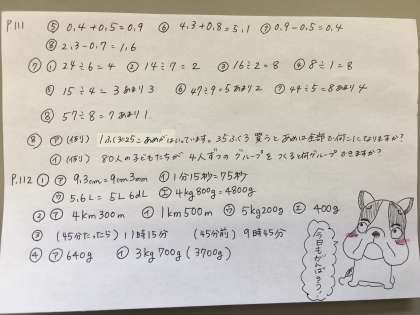 P.111 ⑤ 0.4+0.5=0.9 ⑥ 4.3+0.8=5.1 ⑦ 0.9-0.5=0.4
⑧ 2.3-0.7=1.6
⑦ ① 24÷6=4 ② 14÷7=2 ③ 16÷2=8 ④ 8÷1=8
⑤ 15÷4=3あまり3 ⑥ 47÷9=5あまり2 ⑦ 44÷5=8あまり4
⑧ 57÷8=7あまり1
⑧ ㋐ (例り) 1ふくろに25こあめがはいっています。35ふくろ買うとあめは全部で何こになりますか?
㋑ (例り) 80人の子どもたちが4人ずつのグループをつくると何グループできますか?
P.112 ① ㋐ 9.3cm=9cm3mm ㋑ 1分15秒=75秒
㋒ 5.6L=5L6dL ㋓ 4kg800g=4800g
② ㋐ 4km300m ㋑ 1km500m ㋒ 5kg200g ㋓ 400g
③ (45分たったら) 11時15分 (45分前) 9時45分
④ ㋐ 640g ㋑ 3kg700g (3700g)
今日もがんばろう!